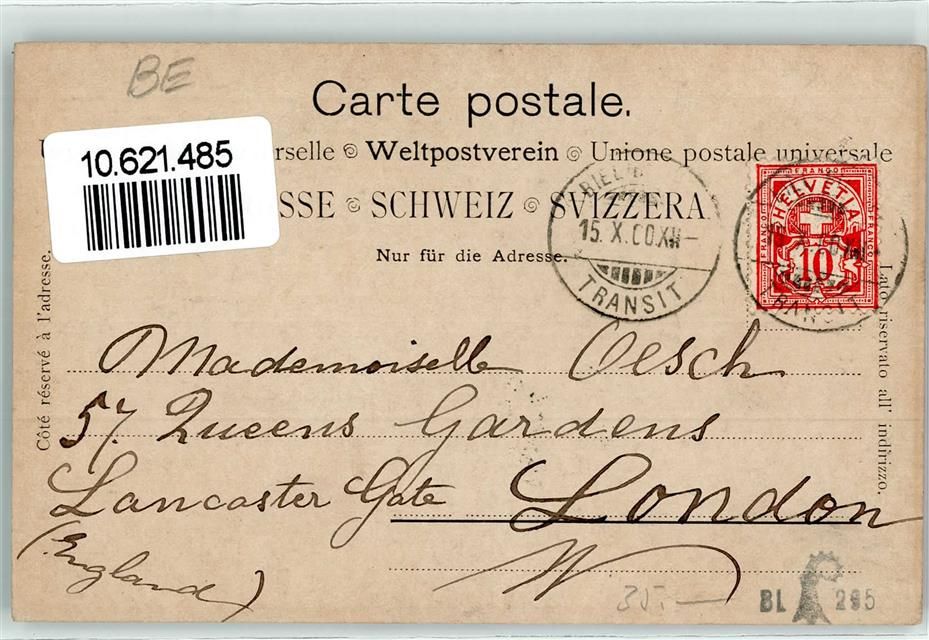 BE
Carte postale.
10.621.485
rselle Weltpostverein Unione postale universale
SSE SCHWEIZ SVIZZERA.
Nur für die Adresse.
BIEL
15. X. 00. XII–
TRANSIT
FRANCO
HELVETIA
FRANCO
FRANCO
10
Côté réservé à l'adresse.
Lato riservato all' indirizzo.
Mademoiselle Oesch
57. Queens Gardens
Lancaster Gate London
(England) W
35.–
BL 295